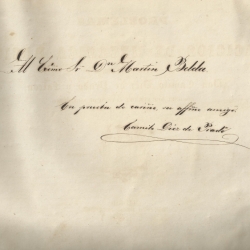 Al Excmo Sr Dn Martin Belda
En prueba de cariño su affmo amigo
Camilo Diez de Prado